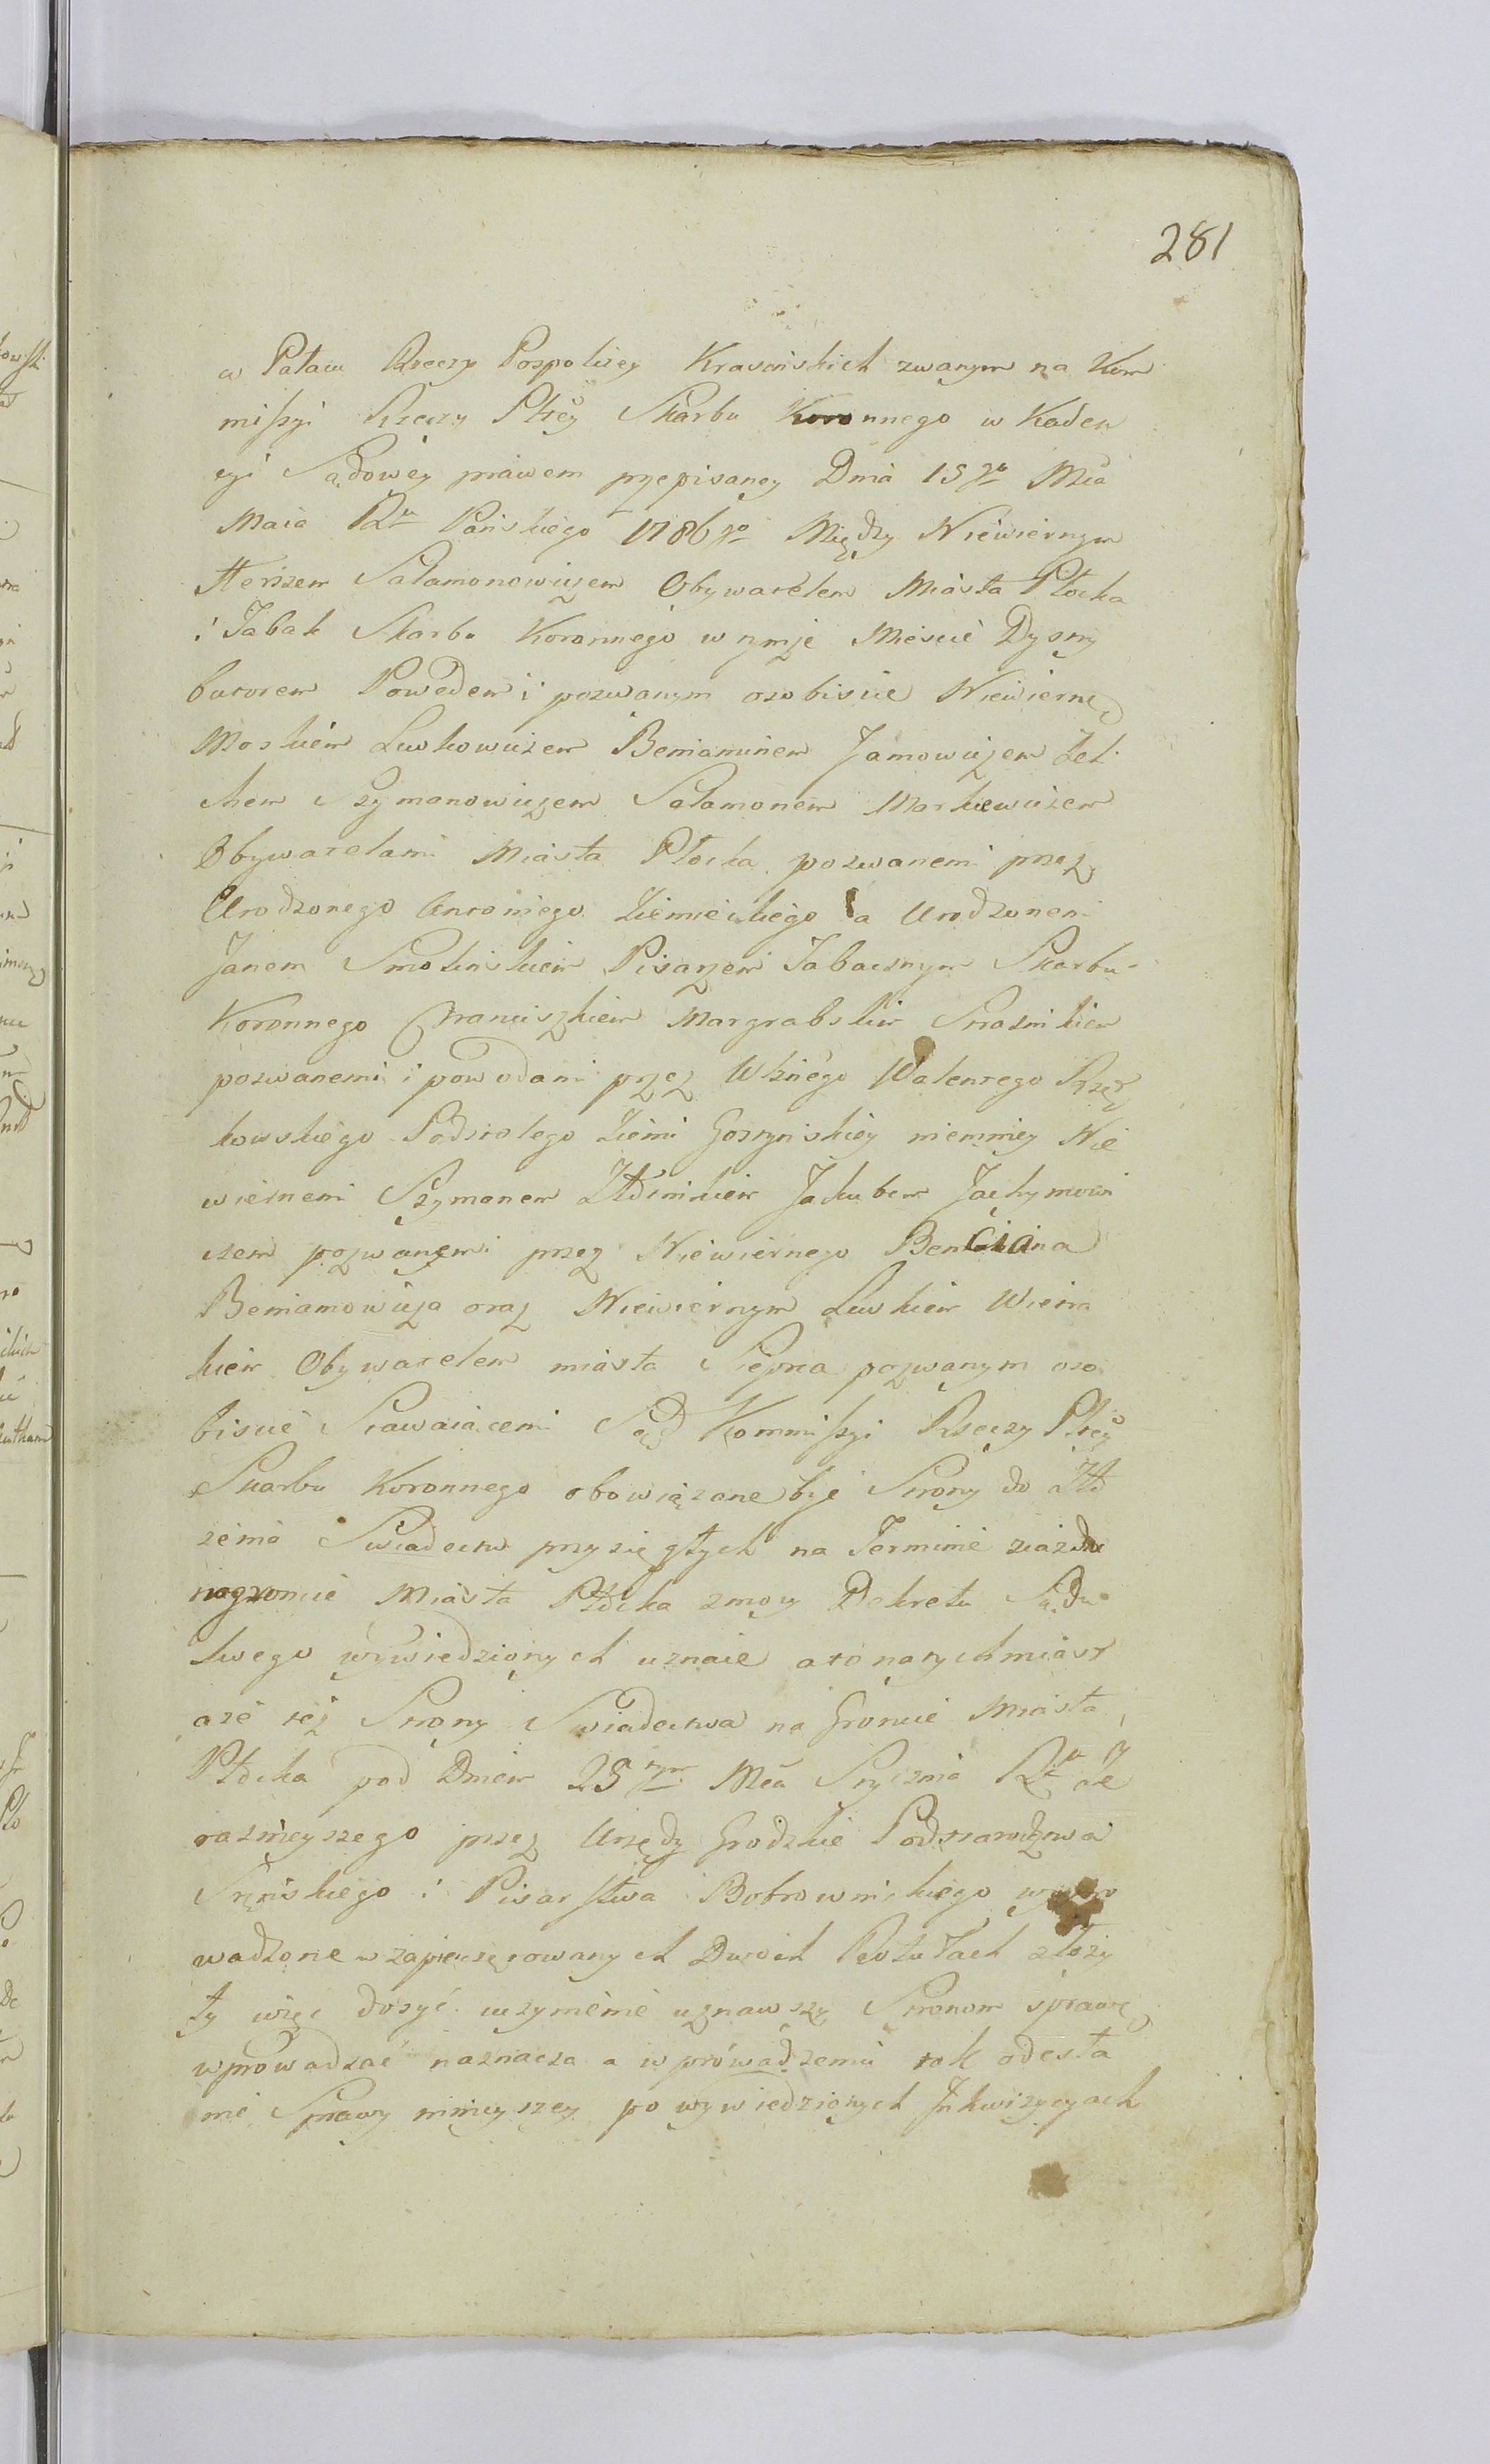 281
w Pałacu Rzeczy Pospolitey Krasińskich zwanym na Kom
missyi Rzeczy Pltey Skarbu Koronnego w Kaden
cyi Sądowey prawem przepisaney Dnia 15go Mca
Maia Rku Pańskiego 1786go Między Niewiernym
Herszem Salamonowiczem Obywatelem Miasta Płocka
i Tabak Skarbu Koronnego w tymże Mieście Dystry
butorem Powodem i pozwanym osobiście Niewierne
Moskiem Lewkowiczem Beniaminem Jamowiczem Zel
chem Szymanowiczem Salamonem Markiewiczem
Obywatelami Miasta Płocka pozwanemi przez
Urodzonego Antoniego Ziemieckiego a Urodzonemi
Janem Smolinskiem Pisarzem Tabacznym Skarbu
Koronnego Franciszkiem Margrabskim Strażnikiem
pozwanemi i powodami przez Wżnego Walentego
kowskiego Podstolego Ziemi Gostynskiey niemniey Nie
wiernemi Szymonem Jakubem Jachymowi
czem pozwanemi przez Niewiernego Benciana
Beniamowicza oraz Niewiernym Lewkiem
kiem Obywatelem miasta Sierpca pozwanym oso
biście Stawaiącemi Sąd Kommissyi Rzeczy Pltey
Skarbu Koronnego obowiązane być Strony do Zło
żenia Swiadectw przysięgłych na Terminie ziazdu
nagroncie Miasta Płocka zmocy Dekretu Sądu
swego wywiedzionych uznaie a to natychmiast
aże też Strony Swiadectwa na Groncie Miasta
Płocka pod Dniem 25tym Mca Stycznia Rku Te
raznieyszego przez Urzędy Grodzkie Podstarostwa
i Pisarstwa Bobrownickiego wypro
wadzone w zapieczętowanych Dwoch Rotułach złoży
ły więc dosyć uczynienie uznawszy Stronom sprawę
wprowadzać naznacza a w prowadzeniu tak odesła
nie Sprawy ninieyszey po wywiedzionych Inkwizycyach